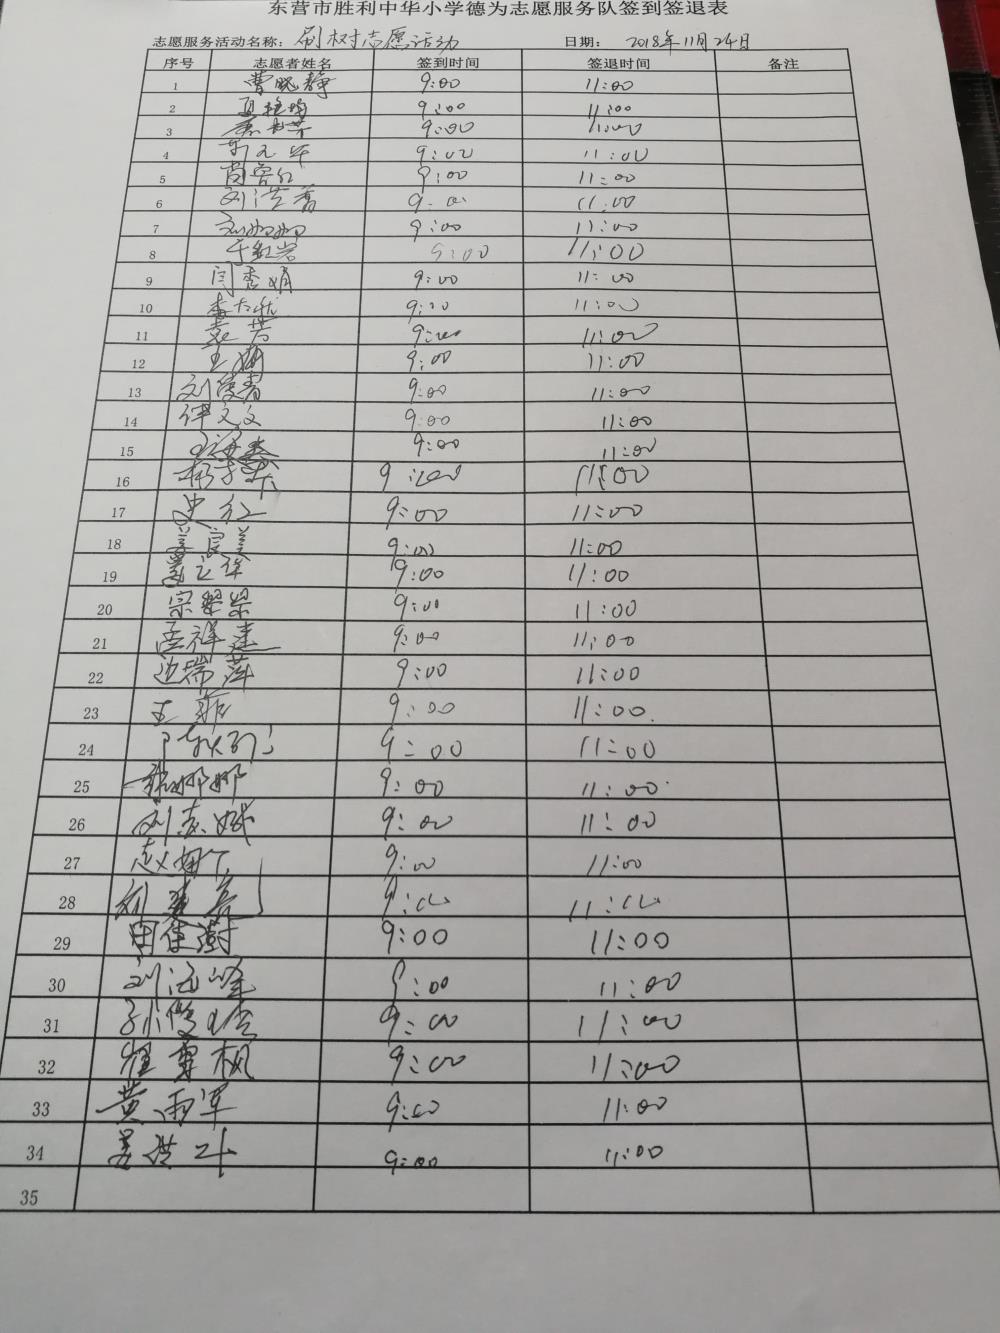 东营市胜利中华小学德为志愿服务队签到签退表
志愿服务活动名称：刷树志愿活动 日期： 2018年11月24日
序号 志愿者姓名 签到时间 签退时间 备注
1 曹晓静 9:00 11:00
2 9:00 11:00
3 9:00 11:00
4 9:00 11:00
5 9:00 11:00
6 刘洪 9:00 11:00
7 刘娜娜 9:00 11:00
8 于红岩 9:00 11:00
9 闫秀娟 9:00 11:00
10 李 9:00 11:00
11 袁芳 9:00 11:00
12 王娟 9:00 11:00
13 刘俊青 9:00 11:00
14 许文文 9:00 11:00
15 9:00 11:00
16 杨 9:00 11:00
17 史红 9:00 11:00
18 姜良美 9:00 11:00
19 9:00 11:00
20 宗翠翠 9:00 11:00
21 孟祥建 9:00 11:00
22 边瑞萍 9:00 11:00
23 王菲 9:00 11:00
24 9:00 11:00
25 张娜娜 9:00 11:00
26 刘志斌 9:00 11:00
27 赵 9:00 11:00
28 刘 9:00 11:00
29 田佳澍 9:00 11:00
30 刘远峰 9:00 11:00
31 孙俊 9:00 11:00
32 程雪枫 9:00 11:00
33 黄雨军 9:00 11:00
34 姜洪叶 9:00 11:00
35